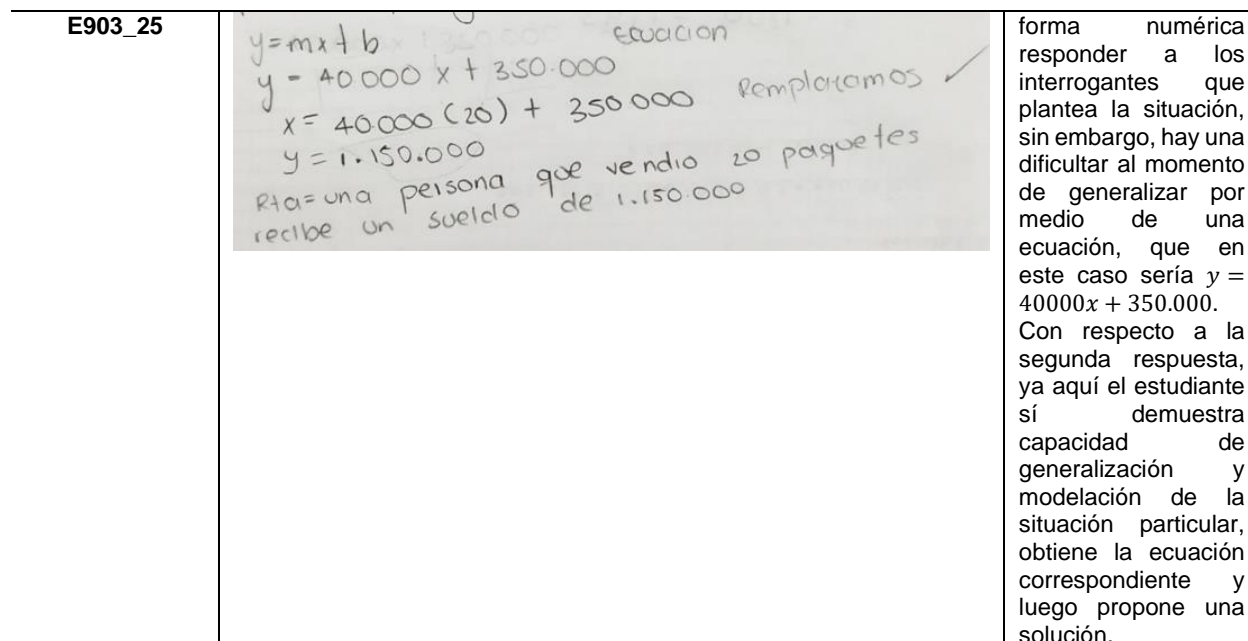 E903_25
y=mx+b Ecuacion
y = 40.000 x + 350.000
x = 40.000 (20) + 350 000 Remplazamos ✓
y = 1.150.000
Rta= una persona que vendio 20 paquetes
recibe un sueldo de 1.150.000
forma numérica
responder a los
interrogantes que
plantea la situación,
sin embargo, hay una
dificultar al momento
de generalizar por
medio de una
ecuación, que en
este caso sería y =
40000x + 350.000.
Con respecto a la
segunda respuesta,
ya aquí el estudiante
sí demuestra
capacidad de
generalización y
modelación de la
situación particular,
obtiene la ecuación
correspondiente y
luego propone una
solución.